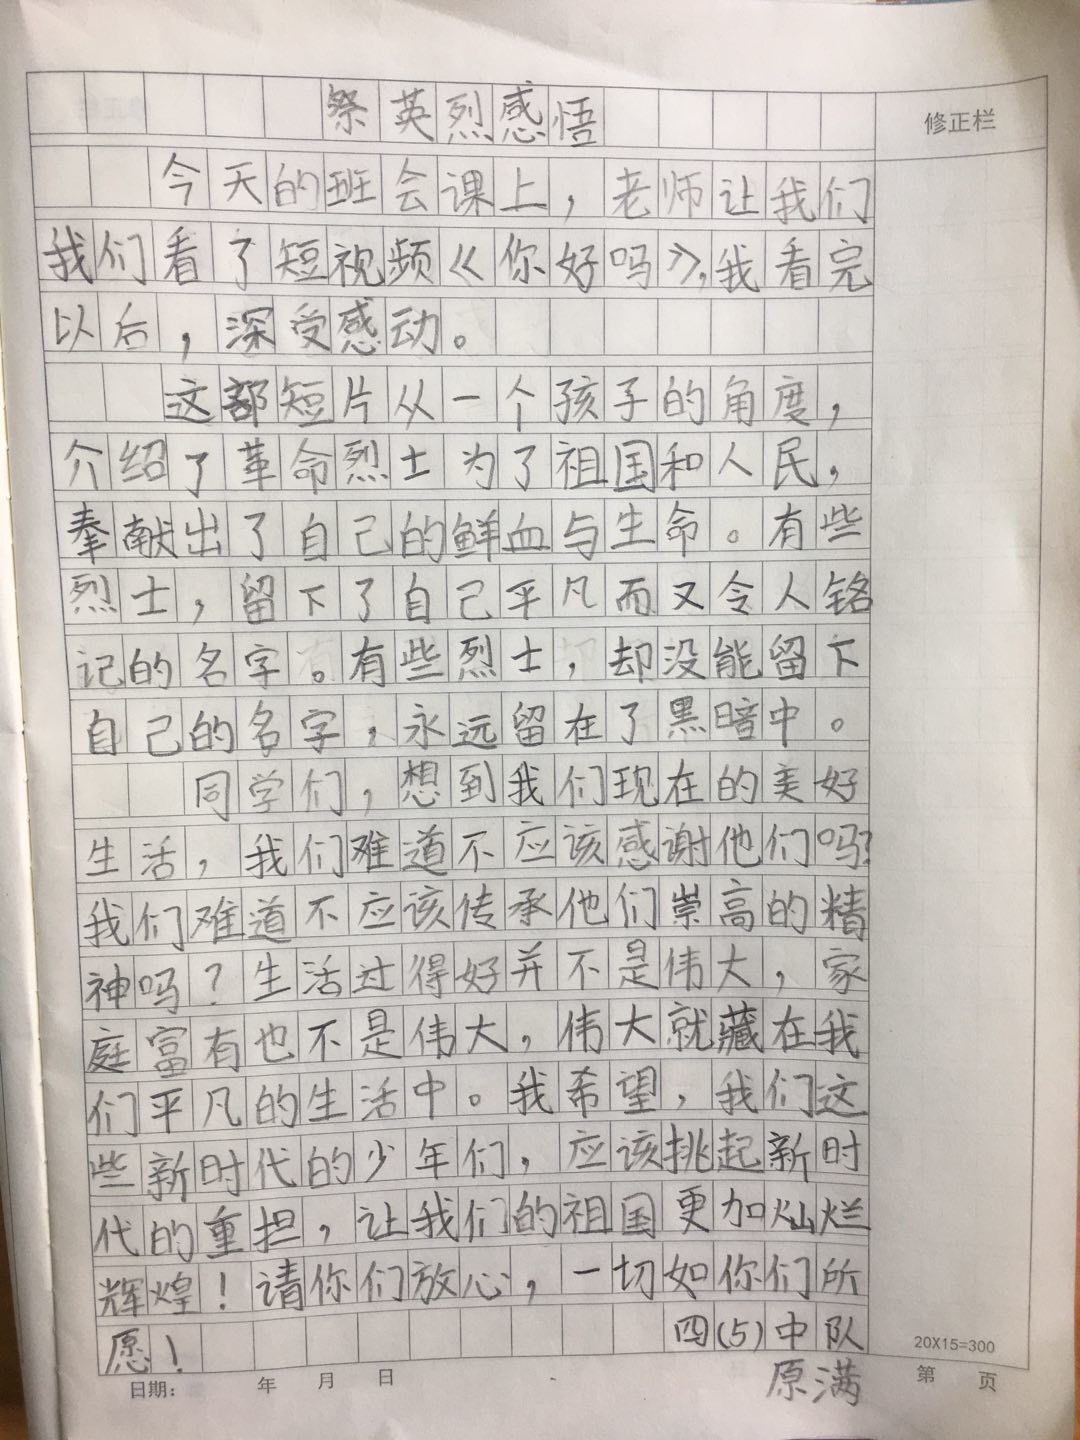 祭英烈感悟
修正栏
今天的班会课上，老师让我们
我们看了短视频《你好吗》，我看完
以后，深受感动。
这部短片从一个孩子的角度，
介绍了革命烈士为了祖国和人民，
奉献出了自己的鲜血与生命。有些
烈士，留下了自己平凡而又令人铭
记的名字。有些烈士，却没能留下
自己的名字，永远留在了黑暗中。
同学们，想到我们现在的美好
生活，我们难道不应该感谢他们吗？
我们难道不应该传承他们崇高的精
神吗？生活过得好并不是伟大，家
庭富有也不是伟大，伟大就藏在我
们平凡的生活中。我希望，我们这
些新时代的少年们，应该挑起新时
代的重担，让我们的祖国更加灿烂
辉煌！请你们放心，一切如你们所
愿！
四(5)中队
原满
20X15=300
日期： 年 月 日
第 页